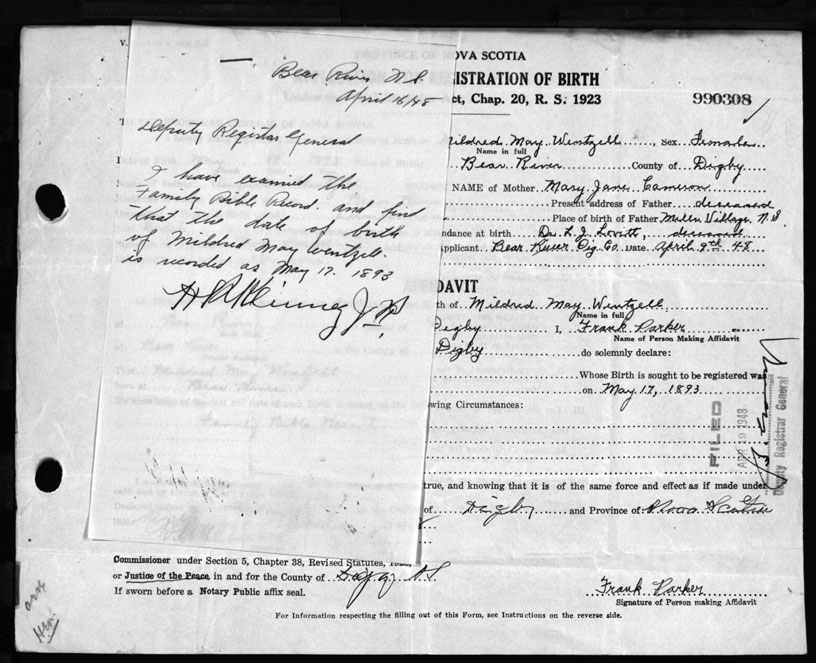 Bear River N.S.
April 16/48
Deputy Registrar General
I have examined the
Family Bible Record and find
that the date of birth
of Mildred May Wentzell.
is recorded as May 17. 1893
NOVA SCOTIA
ISTRATION OF BIRTH
ct, Chap. 20, R. S. 1923
990308
Mildred May Wentzell, Sex Female
Name in full
Bear River County of Digby
NAME of Mother Mary Jane Cameron
Present address of Father deceased
Place of birth of Father Village, N.S.
ndance at birth Dr. L. J. Lovitt, deceased
pplicant Bear River Dig. Co. Date April 9th 48
DAVIT
th of Mildred May Wentzell
Name in full
Digby I, Frank Parker
Name of Person Making Affidavit
Digby do solemnly declare:
Whose Birth is sought to be registered was
on May 17, 1893
wing Circumstances:
FILED
APR 19 1948
Deputy Registrar General
true, and knowing that it is of the same force and effect as if made under
of Digby and Province of Nova Scotia
Commissioner under Section 5, Chapter 38, Revised Statutes,
or Justice of the Peace in and for the County of Digby N.S.
If sworn before a Notary Public affix seal.
Frank Parker
Signature of Person making Affidavit
For Information respecting the filling out of this Form, see Instructions on the reverse side.